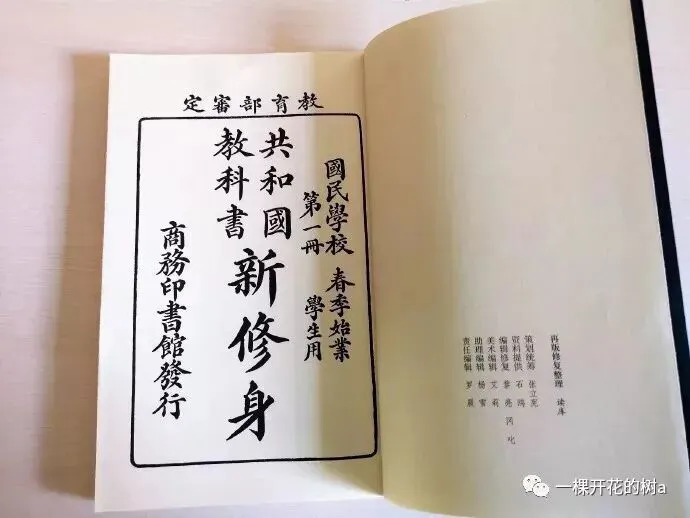 教育部審定
國民學校 春季始業
第一冊 學生用
共和國
教科書
新修身
商務印書館發行
再版修复整理 读库
策划统筹 张立宪
资料提供 石鸥
编辑修复
美术编辑 艾莉
助理编辑 杨雪
责任编辑 罗
一棵开花的树a